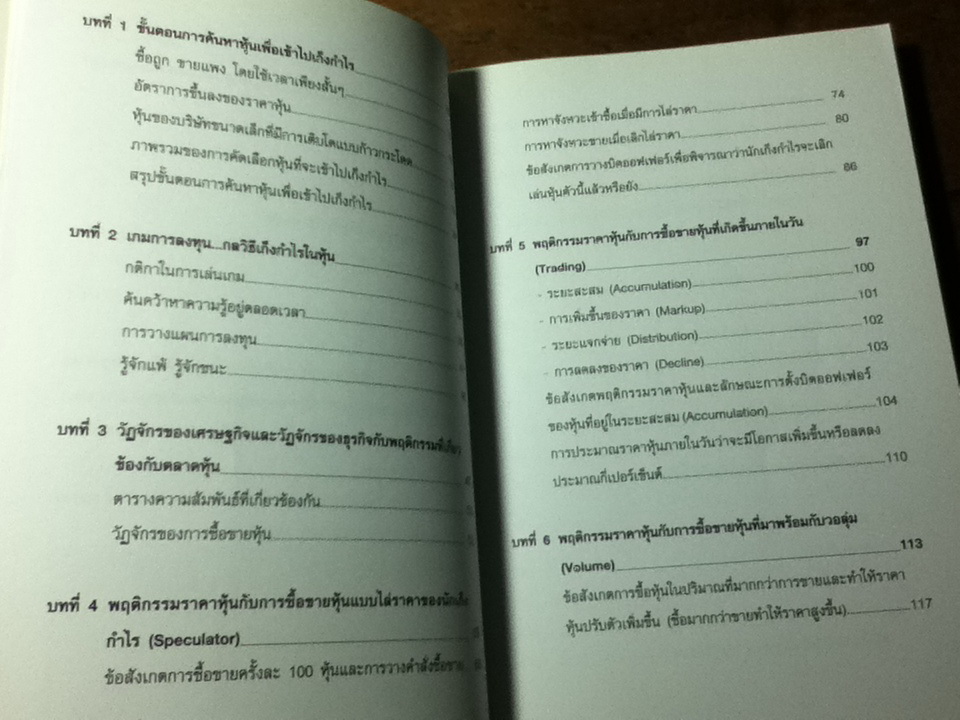 บทที่ 1 ขั้นตอนการค้นหาหุ้นเพื่อเข้าไปเก็งกำไร
ซื้อถูก ขายแพง โดยใช้เวลาเพียงสั้นๆ
อัตราการขึ้นลงของราคาหุ้น
หุ้นของบริษัทขนาดเล็กที่มีการเติบโตแบบก้าวกระโดด
ภาพรวมของการคัดเลือกหุ้นที่จะเข้าไปเก็งกำไร
สรุปขั้นตอนการค้นหาหุ้นเพื่อเข้าไปเก็งกำไร
บทที่ 2 เกมการลงทุน...กลวิธีเก็งกำไรในหุ้น
กติกาในการเล่นเกม
ค้นคว้าหาความรู้อยู่ตลอดเวลา
การวางแผนการลงทุน
รู้จักแพ้ รู้จักชนะ
บทที่ 3 วัฏจักรของเศรษฐกิจและวัฏจักรของธุรกิจกับพฤติกรรมที่เกี่ยว
ข้องกับตลาดหุ้น
ตารางความสัมพันธ์ที่เกี่ยวข้องกัน
วัฏจักรของการซื้อขายหุ้น
บทที่ 4 พฤติกรรมราคาหุ้นกับการซื้อขายหุ้นแบบไล่ราคาของนักเก็ง
กำไร (Speculator)
ข้อสังเกตการซื้อขายครั้งละ 100 หุ้นและการวางคำสั่งซื้อขาย
การหาจังหวะเข้าซื้อเมื่อมีการไล่ราคา 74
การหาจังหวะขายเมื่อเลิกไล่ราคา 80
ข้อสังเกตการวางบิดออฟเฟอร์เพื่อพิจารณาว่านักเก็งกำไรจะเลิก
เล่นหุ้นตัวนี้แล้วหรือยัง 86
บทที่ 5 พฤติกรรมราคาหุ้นกับการซื้อขายหุ้นที่เกิดขึ้นภายในวัน
(Trading) 97
- ระยะสะสม (Accumulation) 100
- การเพิ่มขึ้นของราคา (Markup) 101
- ระยะแจกจ่าย (Distribution) 102
- การลดลงของราคา (Decline) 103
ข้อสังเกตพฤติกรรมราคาหุ้นและลักษณะการตั้งบิดออฟเฟอร์
ของหุ้นที่อยู่ในระยะสะสม (Accumulation) 104
การประมาณราคาหุ้นภายในวันว่าจะมีโอกาสเพิ่มขึ้นหรือลดลง
ประมาณกี่เปอร์เซ็นต์ 110
บทที่ 6 พฤติกรรมราคาหุ้นกับการซื้อขายหุ้นที่มาพร้อมกับวอลุ่ม
(Volume) 113
ข้อสังเกตการซื้อหุ้นในปริมาณที่มากกว่าการขายและทำให้ราคา
หุ้นปรับตัวเพิ่มขึ้น (ซื้อมากกว่าขายทำให้ราคาสูงขึ้น) 117